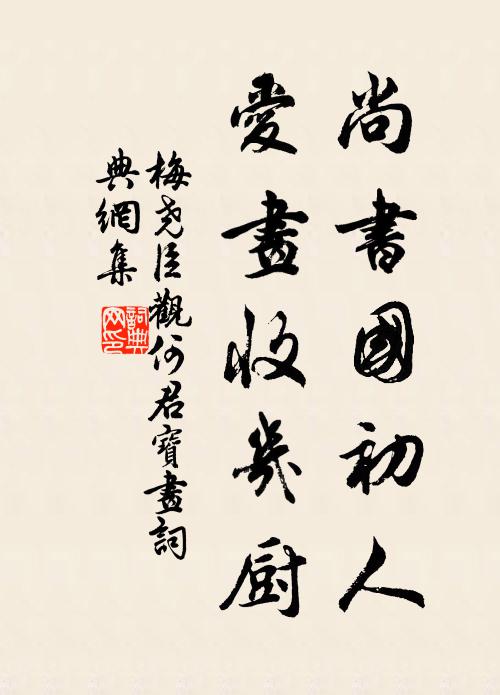 尚書國初人
愛畫收幾廚
梅堯臣觀何君寶畫詞
典網集
詞典網印